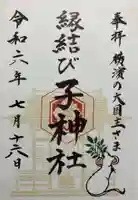 奉拝 横濱の大国さま
縁結び 子神社
令和六年 七月十六日